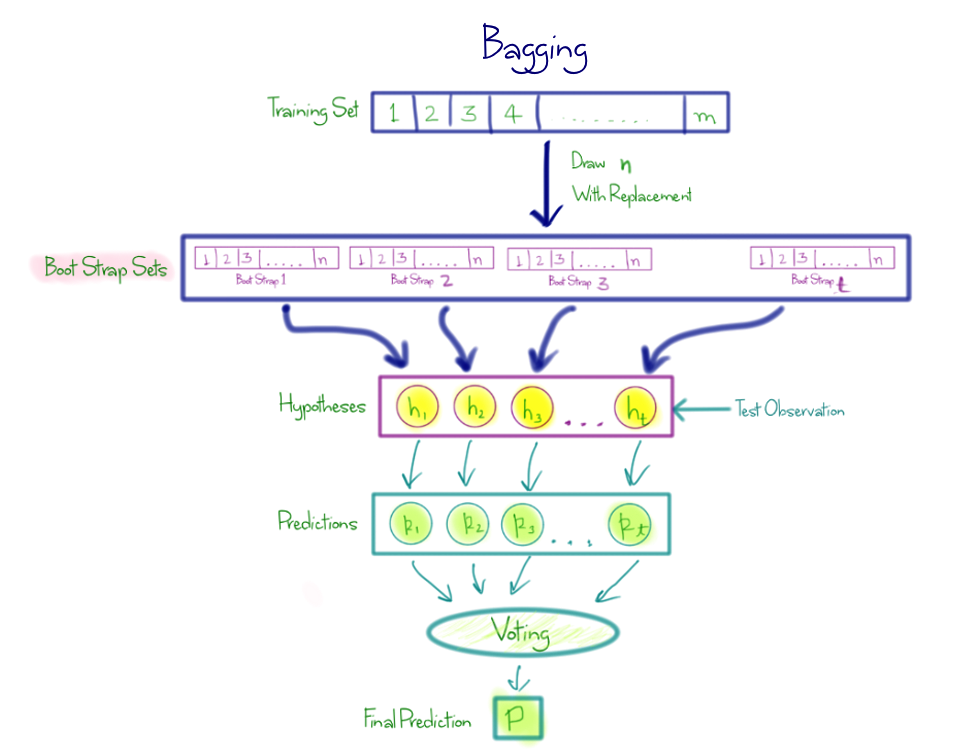 Bagging
Training Set 1 2 3 4 ........ m
Draw n
With Replacement
Boot Strap Sets
1 2 3 ..... n 1 2 3 ..... n 1 2 3 ..... n 1 2 3 ..... n
Boot Strap 1 Boot Strap 2 Boot Strap 3 Boot Strap t
Hypotheses h1 h2 h3 ... ht Test Observation
Predictions P1 P2 P3 ... Pt
Voting
Final Prediction P